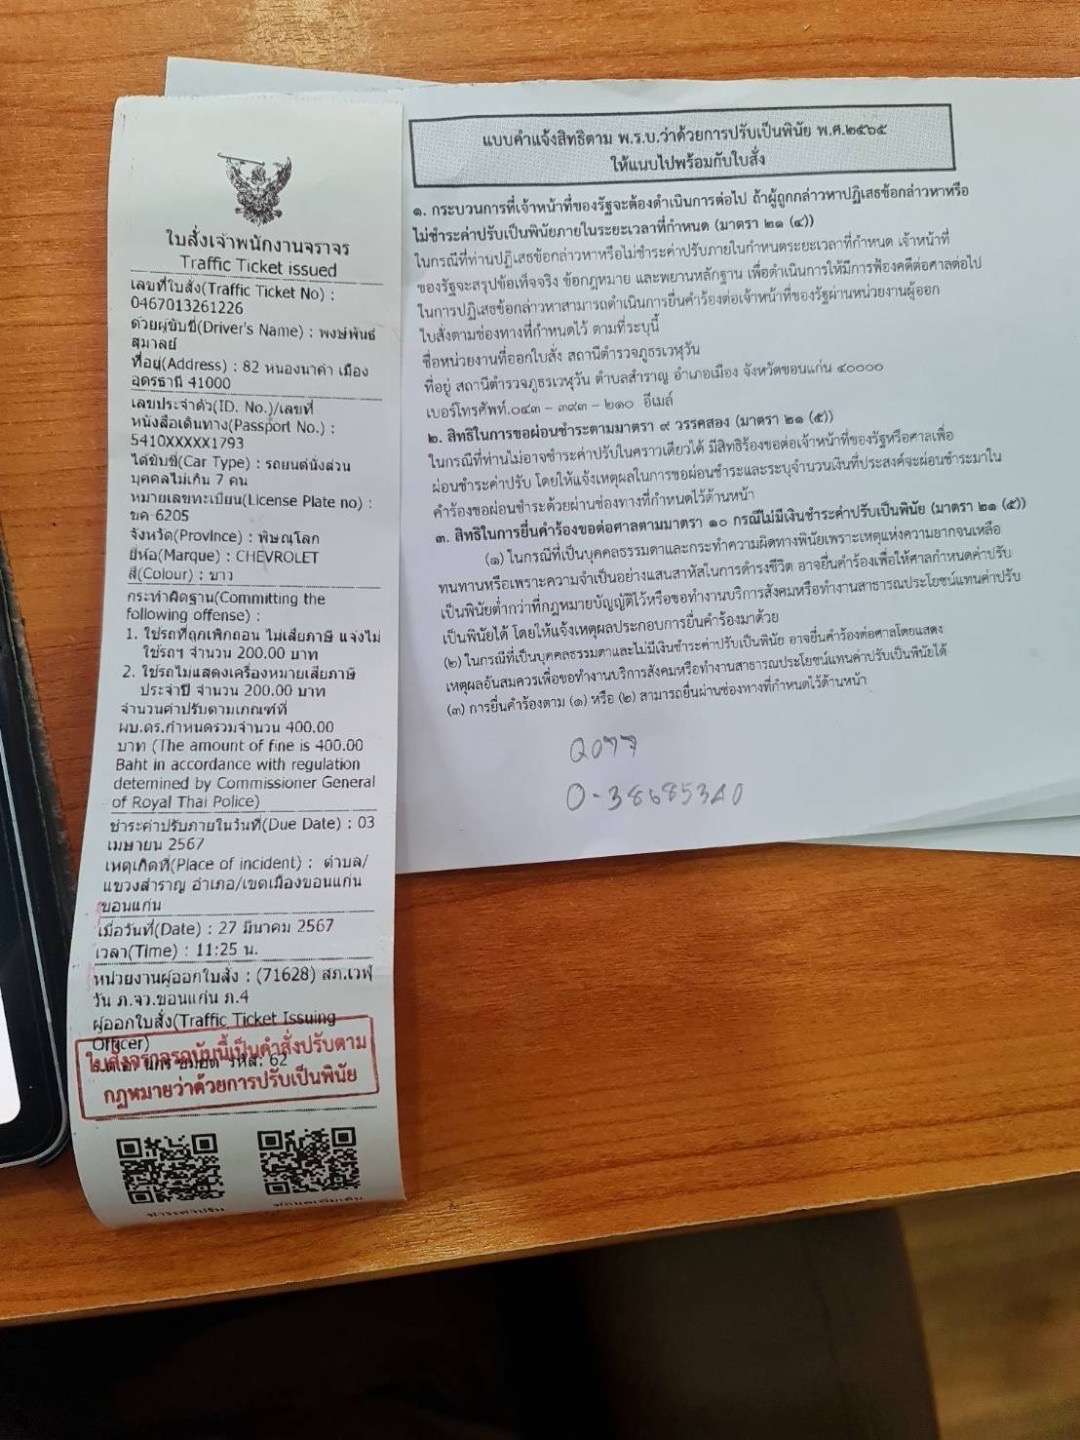 ใบสั่งเจ้าพนักงานจราจร
Traffic Ticket issued
เลขที่ใบสั่ง(Traffic Ticket No) :
0467013261226
ด้วยผู้ขับขี่(Driver's Name) : พงษ์พันธ์
สุมาลย์
ที่อยู่(Address) : 82 หนองนาคำ เมือง
อุดรธานี 41000
เลขประจำตัว(ID. No.)/เลขที่
หนังสือเดินทาง(Passport No.) :
5410XXXXX1793
ได้ขับขี่(Car Type) : รถยนต์นั่งส่วน
บุคคลไม่เกิน 7 คน
หมายเลขทะเบียน(License Plate no) :
ขค 6205
จังหวัด(Province) : พิษณุโลก
ยี่ห้อ(Marque) : CHEVROLET
สี(Colour) : ขาว
กระทำผิดฐาน(Committing the
following offense) :
1. ใช้รถที่ถูกเพิกถอน ไม่เสียภาษี แจ้งไม่
ใช้รถฯ จำนวน 200.00 บาท
2. ใช้รถไม่แสดงเครื่องหมายเสียภาษี
ประจำปี จำนวน 200.00 บาท
จำนวนค่าปรับตามเกณฑ์ที่
ผบ.ตร.กำหนดรวมจำนวน 400.00
บาท (The amount of fine is 400.00
Baht in accordance with regulation
detemined by Commissioner General
of Royal Thai Police)
ชำระค่าปรับภายในวันที่(Due Date) : 03
เมษายน 2567
เหตุเกิดที่(Place of incident) : ตำบล/
แขวงสำราญ อำเภอ/เขตเมืองขอนแก่น
ขอนแก่น
เมื่อวันที่(Date) : 27 มีนาคม 2567
เวลา(Time) : 11:25 น.
หน่วยงานผู้ออกใบสั่ง : (71628) สภ.เวฬุ
วัน ภ.จว.ขอนแก่น ภ.4
ผู้ออกใบสั่ง(Traffic Ticket Issuing
Officer)
รหัส: 62
ใบสั่งจราจรฉบับนี้เป็นคำสั่งปรับตาม
กฎหมายว่าด้วยการปรับเป็นพินัย
ชำระค่าปรับ
ข้อมูลเพิ่มเติม
แบบคำแจ้งสิทธิตาม พ.ร.บ.ว่าด้วยการปรับเป็นพินัย พ.ศ.๒๕๖๕
ให้แนบไปพร้อมกับใบสั่ง
๑. กระบวนการที่เจ้าหน้าที่ของรัฐจะต้องดำเนินการต่อไป ถ้าผู้ถูกกล่าวหาปฏิเสธข้อกล่าวหาหรือ
ไม่ชำระค่าปรับเป็นพินัยภายในระยะเวลาที่กำหนด (มาตรา ๒๑ (๔))
ในกรณีที่ท่านปฏิเสธข้อกล่าวหาหรือไม่ชำระค่าปรับภายในกำหนดระยะเวลาที่กำหนด เจ้าหน้าที่
ของรัฐจะสรุปข้อเท็จจริง ข้อกฎหมาย และพยานหลักฐาน เพื่อดำเนินการให้มีการฟ้องคดีต่อศาลต่อไป
ในการปฏิเสธข้อกล่าวหาสามารถดำเนินการยื่นคำร้องต่อเจ้าหน้าที่ของรัฐผ่านหน่วยงานผู้ออก
ใบสั่งตามช่องทางที่กำหนดไว้ ตามที่ระบุนี้
ชื่อหน่วยงานที่ออกใบสั่ง สถานีตำรวจภูธรเวฬุวัน
ที่อยู่ สถานีตำรวจภูธรเวฬุวัน ตำบลสำราญ อำเภอเมือง จังหวัดขอนแก่น ๔๐๐๐๐
เบอร์โทรศัพท์.๐๔๓ – ๓๙๓ – ๒๑๐ อีเมล์
๒. สิทธิในการขอผ่อนชำระตามมาตรา ๙ วรรคสอง (มาตรา ๒๑ (๕))
ในกรณีที่ท่านไม่อาจชำระค่าปรับในคราวเดียวได้ มีสิทธิร้องขอต่อเจ้าหน้าที่ของรัฐหรือศาลเพื่อ
ผ่อนชำระค่าปรับ โดยให้แจ้งเหตุผลในการขอผ่อนชำระและระบุจำนวนเงินที่ประสงค์จะผ่อนชำระมาใน
คำร้องขอผ่อนชำระด้วยผ่านช่องทางที่กำหนดไว้ด้านหน้า
๓. สิทธิในการยื่นคำร้องขอต่อศาลตามมาตรา ๑๐ กรณีไม่มีเงินชำระค่าปรับเป็นพินัย (มาตรา ๒๑ (๕))
(๑) ในกรณีที่เป็นบุคคลธรรมดาและกระทำความผิดทางพินัยเพราะเหตุแห่งความยากจนเหลือ
ทนทานหรือเพราะความจำเป็นอย่างแสนสาหัสในการดำรงชีวิต อาจยื่นคำร้องเพื่อให้ศาลกำหนดค่าปรับ
เป็นพินัยต่ำกว่าที่กฎหมายบัญญัติไว้หรือขอทำงานบริการสังคมหรือทำงานสาธารณประโยชน์แทนค่าปรับ
เป็นพินัยได้ โดยให้แจ้งเหตุผลประกอบการยื่นคำร้องมาด้วย
(๒) ในกรณีที่เป็นบุคคลธรรมดาและไม่มีเงินชำระค่าปรับเป็นพินัย อาจยื่นคำร้องต่อศาลโดยแสดง
เหตุผลอันสมควรเพื่อขอทำงานบริการสังคมหรือทำงานสาธารณประโยชน์แทนค่าปรับเป็นพินัยได้
(๓) การยื่นคำร้องตาม (๑) หรือ (๒) สามารถยื่นผ่านช่องทางที่กำหนดไว้ด้านหน้า
0-38685340